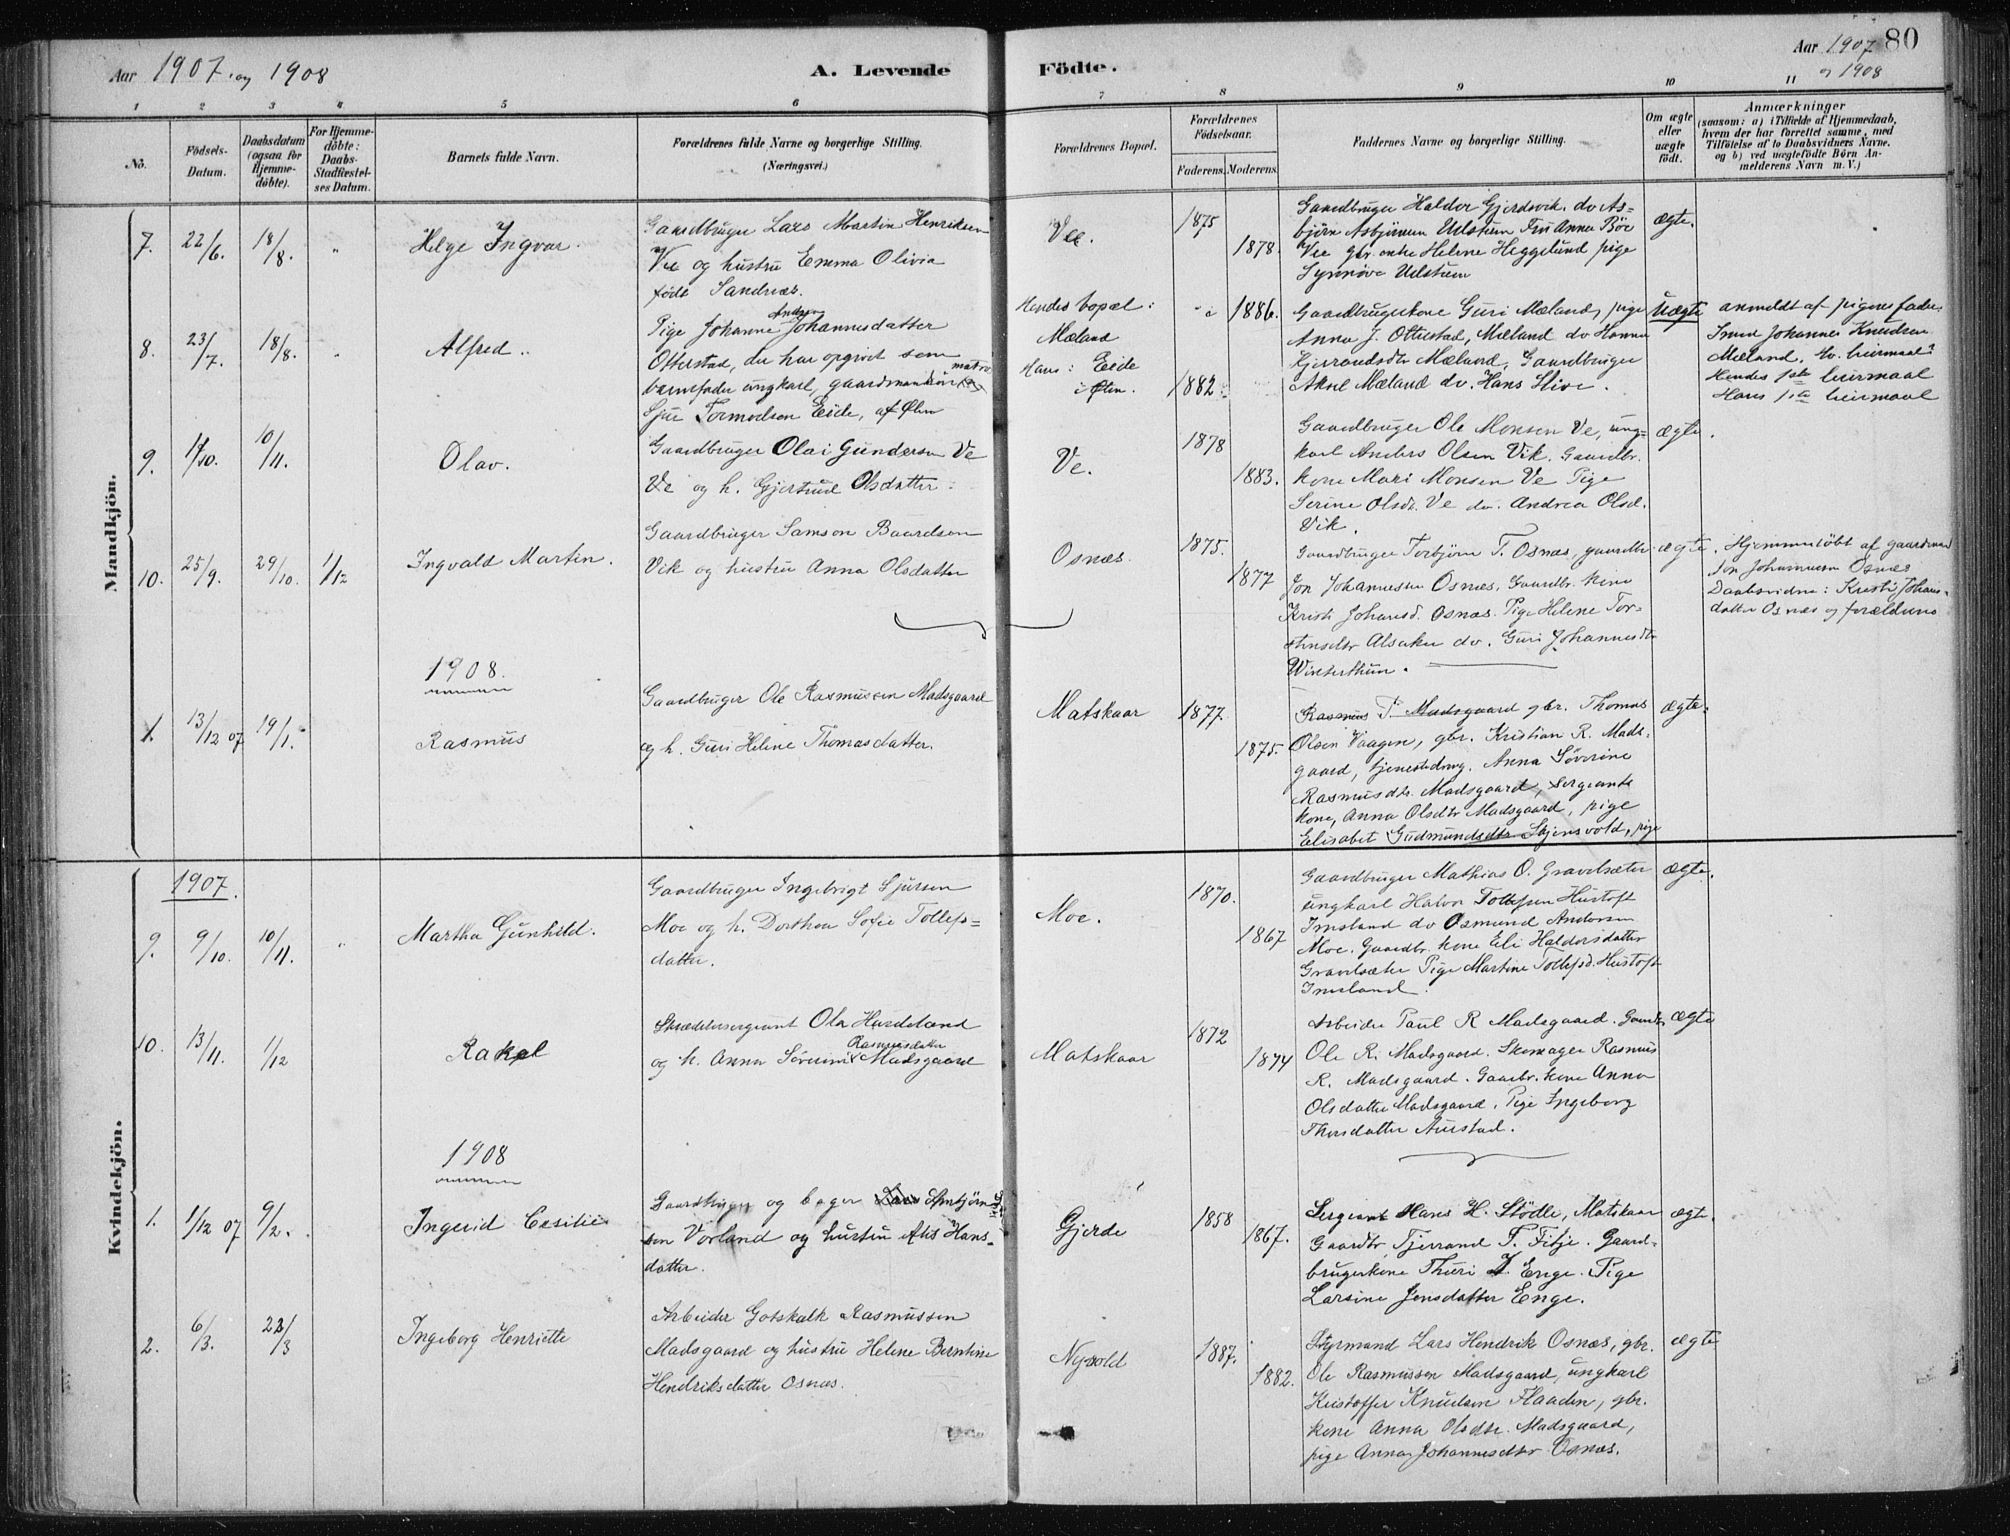 Aar 1907 og 1908
A. Levende
Födte.
Aar 1907 80
og 1908
1 2 3 4 5 6 7 8 9 10 11
No.
Födsels-Datum.
Daabsdatum (ogsaa for Hjemme-döbte).
For Hjemme-döbte: Daabs-Stadfæstel-ses Datum.
Barnets fulde Navn.
Forældrenes fulde Navne og borgerlige Stilling. (Næringsvei.)
Forældrenes Bopæl.
Forældrenes Födselsaar.
Faderens. Moderens.
Faddernes Navne og borgerlige Stilling.
Om ægte eller uægte födt.
Anmærkninger
(saasom: a) i Tilfælde af Hjemmedaab,
hvem der har forrettet samme, med
Tilföielse af to Daabsvidners Navne.
og b) ved uægtefödte Börn An-
melderens Navn m. V.)
Mandkjön.
7. 22/6. 18/8. " Helge Ingvar.
Gaardbruger Lars Martin Henriksen
Vee og hustru Emma Olivia
födt Sandnæs.
Vee. 1875 1878.
Gaardbruger Haldor Gjerdsvik. do As-
björn Asbjörnsen Udstuen Fru Anna Böe
Vee gbr. enke Helene Heggelund pige
Synnöve Udstuen
ægte.
8. 23/7. 18/8. " Alfred.
Pige Johanne Johannesdatter
Otterstad, der har opgivet som
barnefader ungkarl, gaardmandssön
Sjur Tormodsen Eide, af Ølen
Hendes bopæl:
Mæland
Hans: Eide
i Ølen.
1886. 1882
Gaardbrugerkone Guri Mæland, pige
Anna J. Otterstad, Mæland do Hanna
Gjerandsdtr Mæland, Gaardbruger
Aksel Mæland do. Hans Stive.
Uægte
anmeldt af pigens fader
Smed Johannes Knudsen
Mæland. Hv. leiermaal?
Hendes 1ste leiermaal
Hans 1ste leiermaal
9. 10/11. Olav.
Gaardbruger Olai Gundersen Ve
Ve og h. Gjertrud Olsdatter.
Ve. 1878 1883.
Gaardbruger Ole Monsen Ve, ung-
karl Anders Olsen Vik. Gaardbr.
kone Mari Monsen Ve Pige
Serine Olsdr. Ve do. Andrea Olsd.
Vik.
ægte.
10. 25/9. 29/10. 1/12 Ingvald Martin.
Gaardbruger Samson Baardsen
Vik og hustru Anna Olsdatter
Osnæs. 1875. 1877
Gaardbruger Torbjörn T. Osnæs, gaardbr
Jon Johannesen Osnæs, Gaardbr. kone
Kristi Johansd. Osnæs. Pige Helene Tor-
steinsdtr Alsaker do. Guri Johannesdtr
Winterthun.
ægte.
Hjemmedöbt af gaardman
Jon Johannesen Osnæs
Daabsvidne: Kristi Johans-
datter Osnæs og forældrene
1908.
1. 13/12 07 19/1. Rasmus
Gaardbruger Ole Rasmussen Madsgaard
og h. Guri Helene Thomasdatter.
Matskaar 1877. 1875.
Rasmus T. Madsgaard gbr. Thomas
Olsen Vaagen, gbr. Kristian R. Mads-
gaard, tjenestedreng. Anna Söverine
Rasmusdtr. Madsgaard, sergeants
kone, Anna Olsdtr Madsgaard, pige
Elisabet Gudmundsdtr Skjensvold, pige
ægte.
Kvindekjön.
1907.
9. 9/10. 10/11. " Martha Gunhild.
Gaardbruger Ingebrigt Sjursen
Moe og h. Dorthea Sofie Tollefs-
datter.
Moe. 1870. 1867
Gaardbruger Mathias O. Gravelsæter
ungkarl Halvor Tollefsen Hustoft
Imsland do Osmund Andersen
Moe. Gaardbr. kone Eli Haldorsdatter
Gravelsæter Pige Martine Tollefsd. Hustoft
Imsland.
ægte.
10. 13/11. 1/12 Rakel
Skræddersergeant Ola Hardeland
og h. Anna Sörine Rasmusdatter Madsgaard
Matskaar 1872 1874
Arbeider Paul R Madsgaard. Gaardbr
Ole R. Madsgaard. Skomager Rasmus
R. Madsgaard. Gaardbr. kone Anna
Olsdatter Madsgaard. Pige Ingeborg
Thorsdatter Aurstad.
ægte
1908
1. 1/12 07 9/2. Ingerid Cesilie
Gaardbruger og bager
sen Vorland og hustru Hans-
datter.
Gjerde 1858 1867.
Sergeant Hans H. Stödle, Matskaar
Gaardbr. Tjerrand T. Fitje. Gaard-
brugerkone Thuri I. Enge. Pige
Larsine Jensdatter Enge.
ægte.
2. 6/3. 22/3 Ingeborg Henriette
Arbeider Gotskalk Rasmussen
Madsgaard og hustru Helene Berntine
Hendriksdatter Osnæs.
Nyvold 1887. 1882.
Styrmand Lars Hendrik Osnæs, gbr.
Ole Rasmussen Madsgaard, ungkarl
Kristoffer Knudsen Flaaden, gbr.
kone Anna Olsdtr. Madsgaard,
pige Anna Johannesdtr Osnæs.
ægte